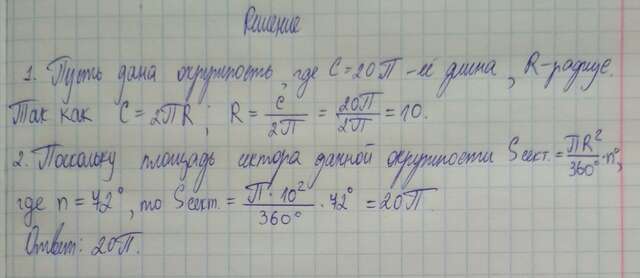 Решение
1. Пусть дана окружность, где C=20П - её длина, R-радиус.
Так как C=2ПR; R = C/2П = 20П/2П = 10.
2. Поскольку площадь сектора данной окружности Sсект. = ПR²/360° · n°,
где n = 72°, то Sсект. = П · 10²/360° · 72° = 20П.
Ответ: 20П.